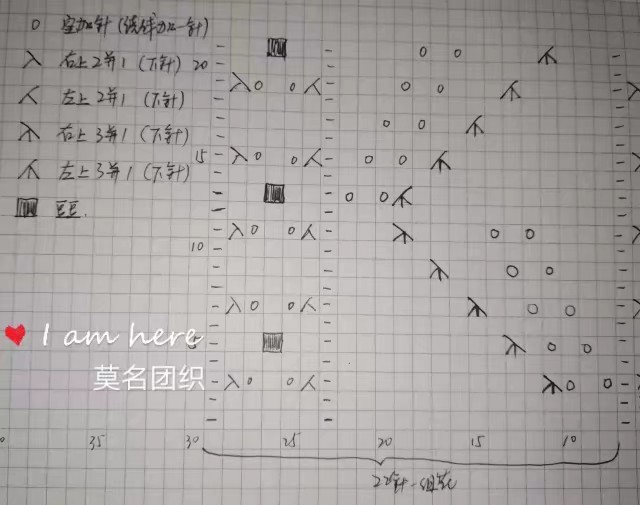 O 空加针(绕线加一针)
入 右上2并1(下针) 20
人 左上2并1(下针)
右上3并1(下针)
15
左上3并1(下针)
豆豆.
10
I am here
5
莫名团织
35 30 25 20 15 10
22针一组花